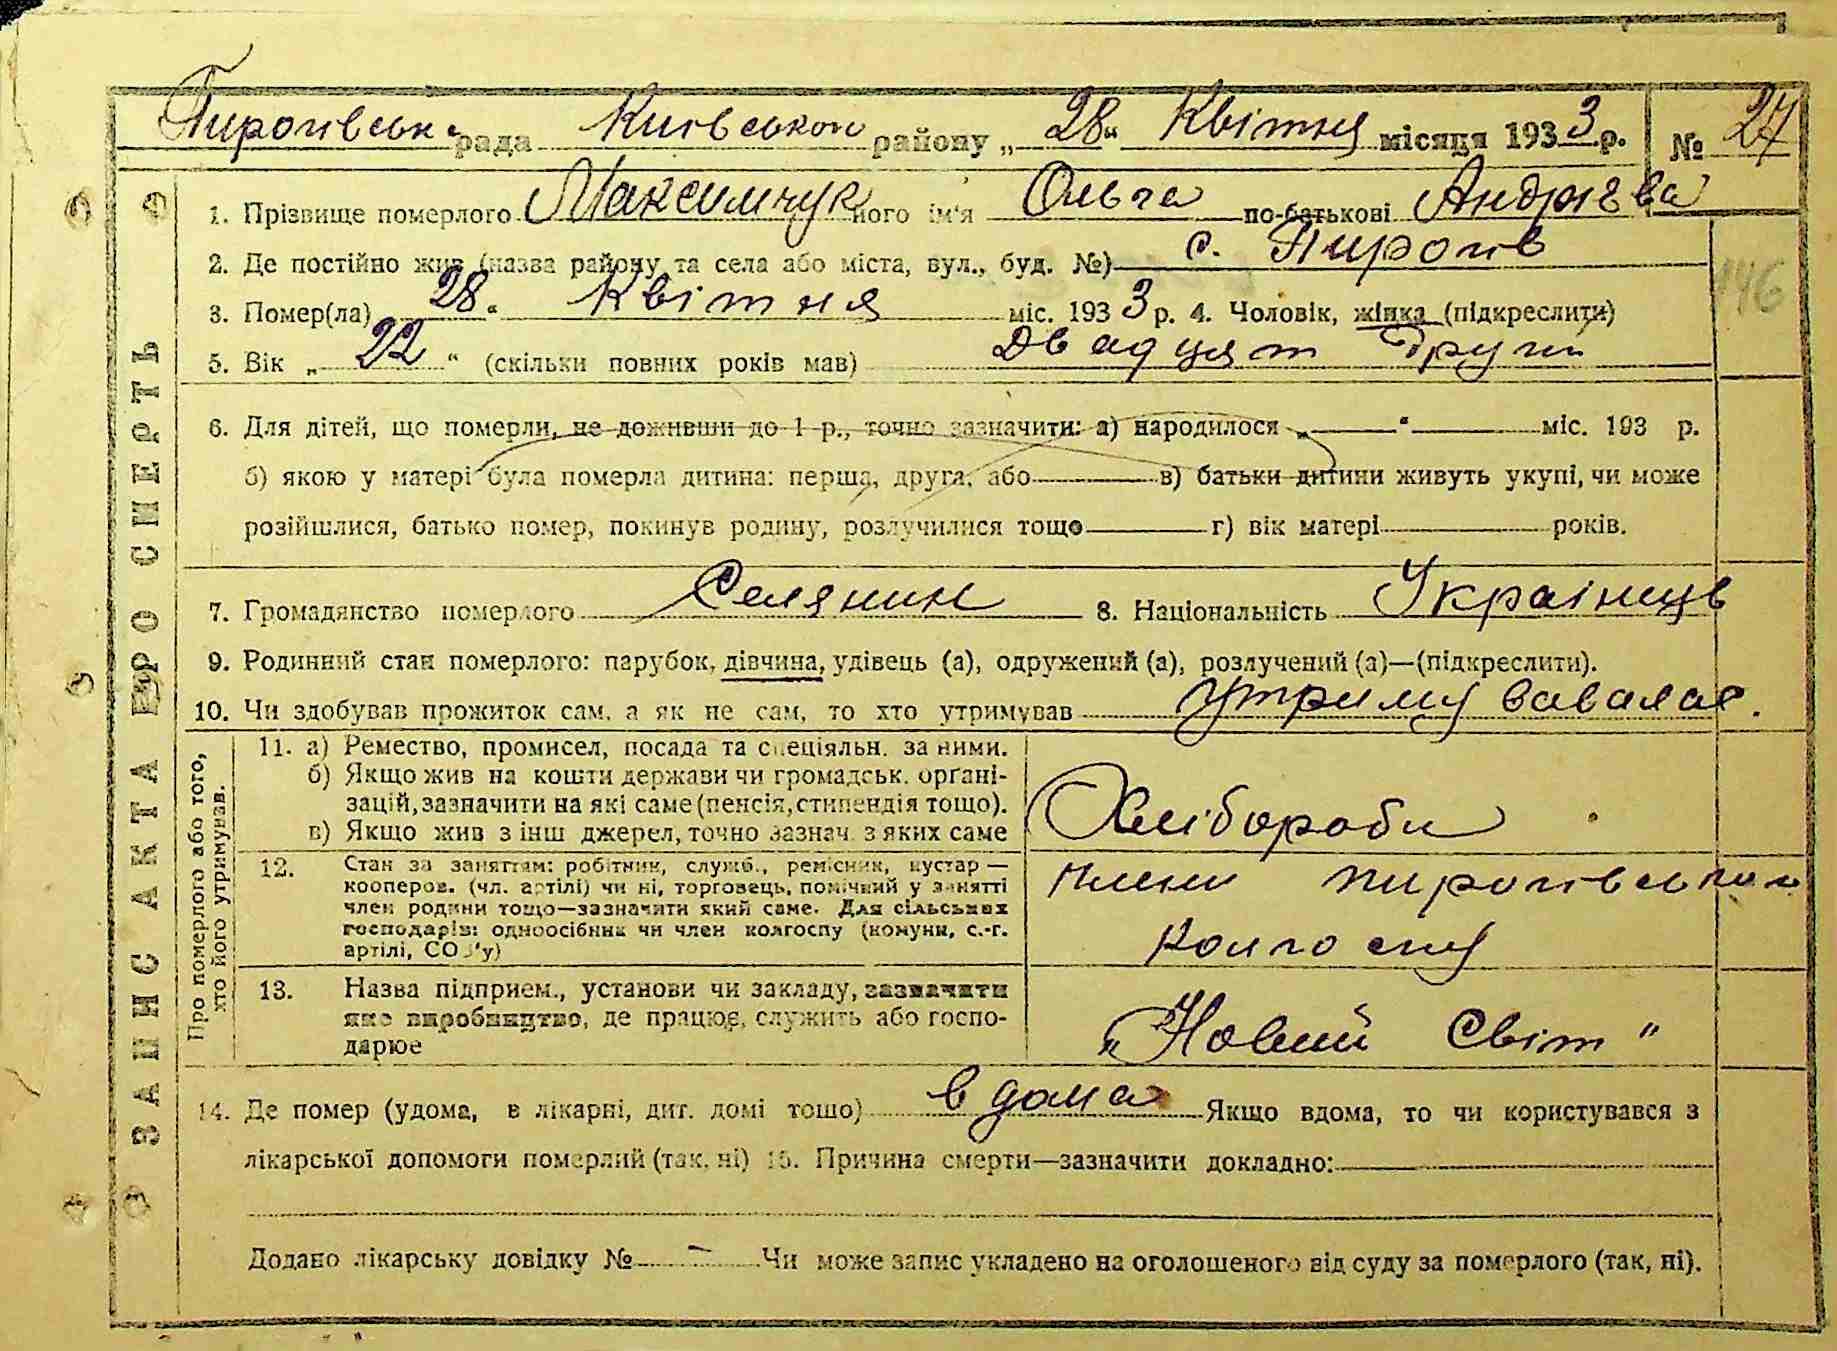 Пирогівськ рада Київського району „28“ Квітня місяця 1933 р. № 27
ЗАПИС АКТА ПРО СМЕРТЬ
1. Прізвище померлого Максимчук його ім'я Ольга по-батькові Андрієва
2. Де постійно жив (назва району та села або міста, вул., буд. №) с. Пирогів
146
3. Помер(ла) 28 “ Квітня міс. 193 3 р. 4. Чоловік, жінка (підкреслити)
5. Вік „ 22 “ (скільки повних років мав) Двадцят други
6. Для дітей, що померли, не доживши до 1 р., точно зазначити: а) народилося „ “ міс. 193 р.
б) якою у матері була померла дитина: перша, друга, або в) батьки дитини живуть укупі, чи може
розійшлися, батько помер, покинув родину, розлучилися тощо г) вік матері років.
7. Громадянство померлого Селянин 8. Національність Українець
9. Родинний стан померлого: парубок, дівчина, удівець (а), одружений (а), розлучений (а)—(підкреслити).
10. Чи здобував прожиток сам, а як не сам, то хто утримував
Про померлого або того, хто його утримував.
11. а) Ремество, промисел, посада та спеціяльн. за ними.
б) Якщо жив на кошти держави чи громадськ. органі-
зацій, зазначити на які саме (пенсія, стипендія тощо).
в) Якщо жив з інш джерел, точно зазнач. з яких саме
Хлібороби
12. Стан за заняттям: робітник, служб., ремісник, кустар —
кооперов. (чл. артілі) чи ні, торговець, помічний у занятті
член родини тощо—зазначити який саме. Для сільських
господарів: одноосібник чи член колгоспу (комуни, с.-г.
артілі, СОЗ'у)
члени пирогівського
колгоспу
13. Назва підприєм., установи чи закладу, зазначити
яке виробництво, де працює, служить або госпо-
дарює
„Новий Світ“
14. Де помер (удома, в лікарні, дит. домі тощо) в дома Якщо вдома, то чи користувався з
лікарської допомоги померлий (так, ні) 15. Причина смерти—зазначити докладно:
Додано лікарську довідку № — Чи може запис укладено на оголошеного від суду за померлого (так, ні).